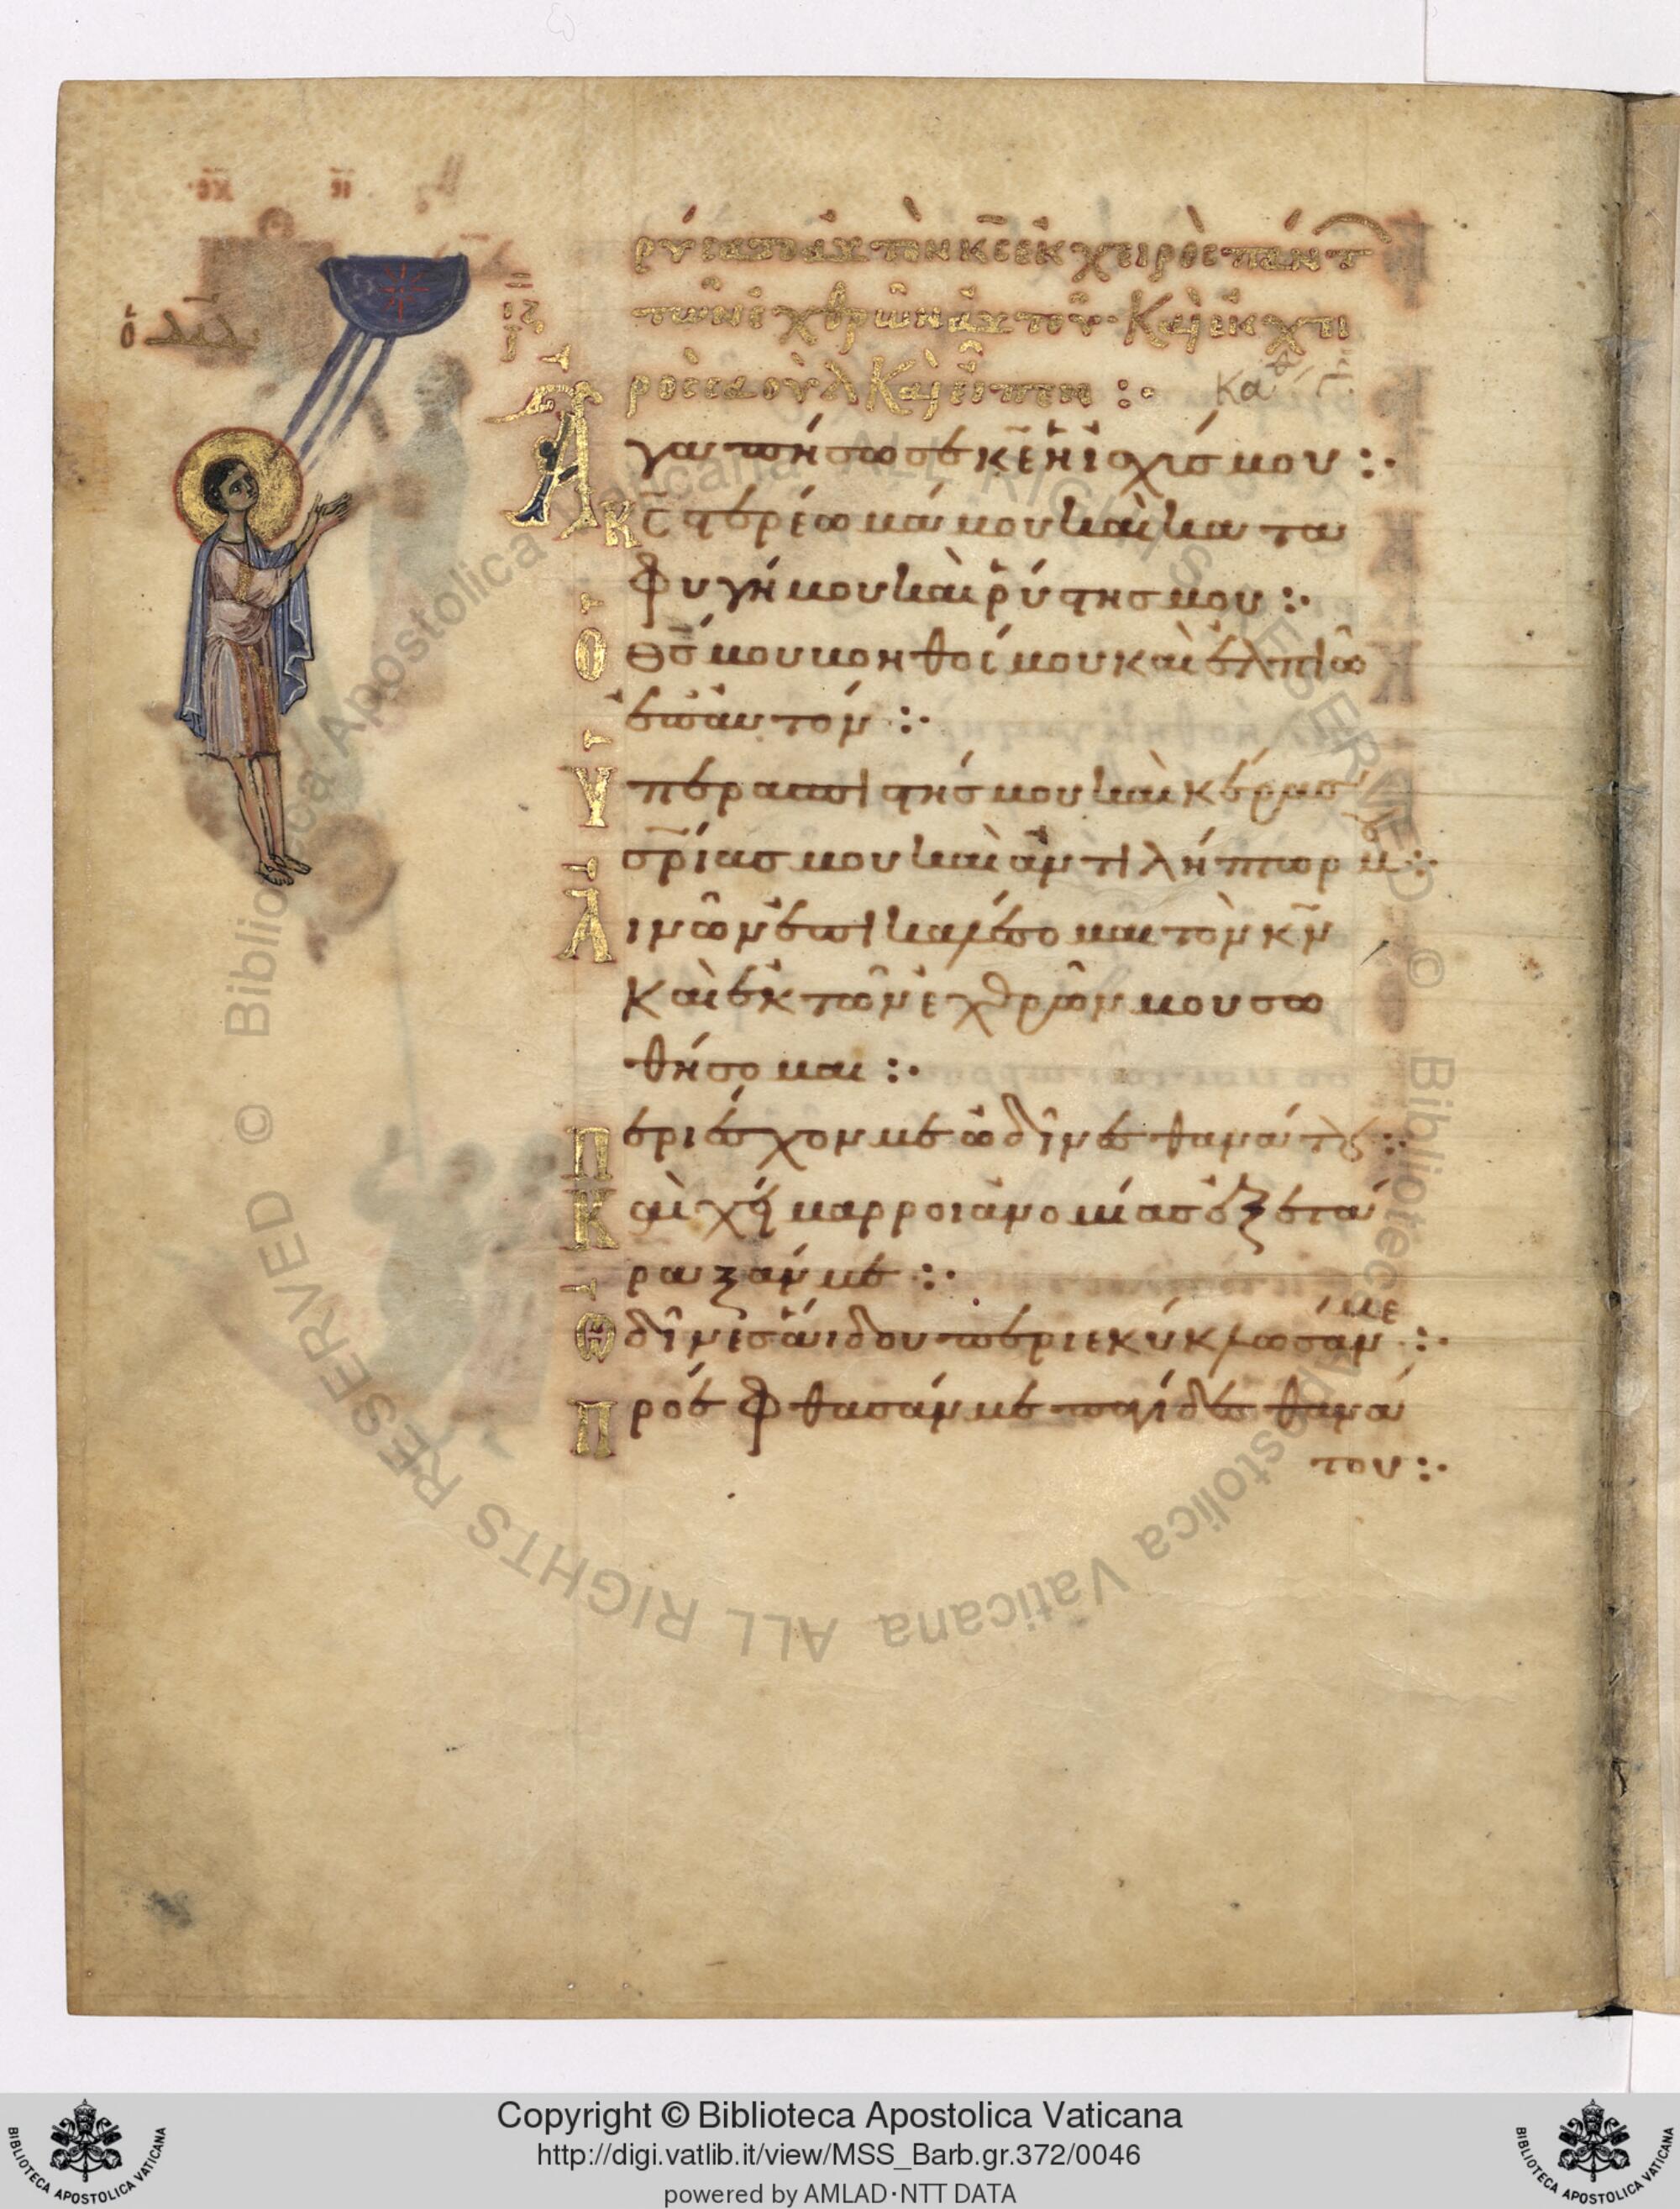 ὁ Δᾱδ
ιζ
ρύσατο ἀυτὸν κ̅ς ἐκ χειρὸς πάντ
τῶν ἐχθρῶν ἀυτοῦ· Καὶ ἐκ χει
ρὸς σαοὺλ Καὶ εἶπεν :·
Ἀγαπήσω σε κ̅ε ἡ ἰσχύσ μου :·
Κ̅ς στερέωμά μου καὶ κατα
φυγή μου καὶ ῥύστησ μου :·
Ὁ θ̅ς μου βοηθόσ μου καὶ ἐλπιῶ
ἐπ' ἀυτόν :·
Ὑπερασπιστήσ μου καὶ κέρασ
σ̅ρίασ μου καὶ ἀντιλήπτωρ μου :·
Αἰνῶν ἐπικαλέσομαι τὸν κ̅ν
Καὶ ἐκ τῶν ἐχθρῶν μου σω
θήσομαι :·
Περιέσχον με ὠδῖνεσ θανάτου :·
Καὶ χείμαρροι ἀνομίασ ἐξετά
ραξάν με :·
Ὠδῖνεσ ἅιδου περιεκύκλωσάν με :·
Προέφθασάν με παγίδεσ θανά
του :·
Copyright © Biblioteca Apostolica Vaticana
http://digi.vatlib.it/view/MSS_Barb.gr.372/0046
powered by AMLAD·NTT DATA
BIBLIOTECA APOSTOLICA VATICANA
BIBLIOTECA APOSTOLICA VATICANA
© Biblioteca Apostolica Vaticana ALL RIGHTS RESERVED © Biblioteca Apostolica Vaticana ALL RIGHTS RESERVED